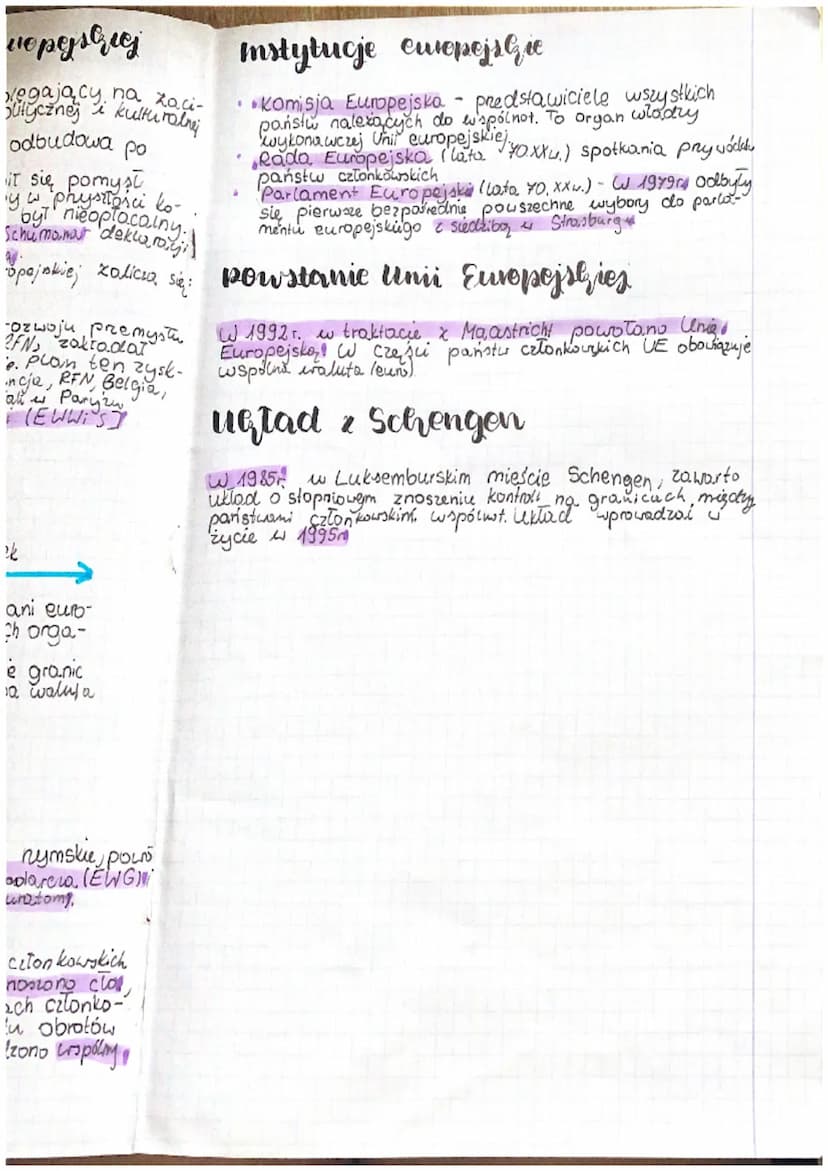 uropejskiej
olegający na zaci-
olitycznej i kulturalnej
odbudowa po
ił się pomysł
by w przyszłości ko-
był nieopłacalny.
Schumana deklaracji
ropejskiej zalicza się:
ozwoju przemysłu
RFN, zakładał
e. Plan ten zysk-
ncja, RFN, Belgia,
ali w Paryżu
(EWWiS)
ek
ani euro-
ch orga-
e granic
na waluta
rzymskie, powo
odarcza (EWG)
uratom).
członkowskich
noszono cła,
ach członko-
tu obrotów
dzono wspólny
Instytucje europejskie
• Komisja Europejska - przedstawiciele wszystkich
państw należących do wspólnot. To organ władzy
wykonawczej Unii europejskiej
• Rada Europejska (lata 70. XX w.) spotkania przywódców
państw członkowskich
• Parlament Europejski (lata 70. XX w.) - W 1979r. odbyły
się pierwsze bezpośrednie powszechne wybory do parla-
mentu europejskiego z siedzibą w Strasburgu
Powstanie Unii Europejskiej
W 1992 r. w traktacie z Maastricht powołano Unię
Europejską! W części państw członkowskich UE obowiązuje
wspólna waluta (euro).
Układ z Schengen
W 1985r. w Luksemburskim mieście Schengen, zawarto
układ o stopniowym znoszeniu kontroli na granicach między
państwami członkowskimi wspólnot. Układ wprowadzał w
życie w 1995r